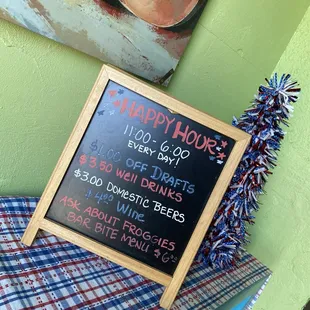 HAPPY HOUR
11:00-6:00
EVERY DAY!
OFF DRAFTS
$3.50 WELL DRINKS
$3.00 DOMESTIC BEERS
Wine
ASK ABOUT FROGGIES
BAR BITE MENU $6